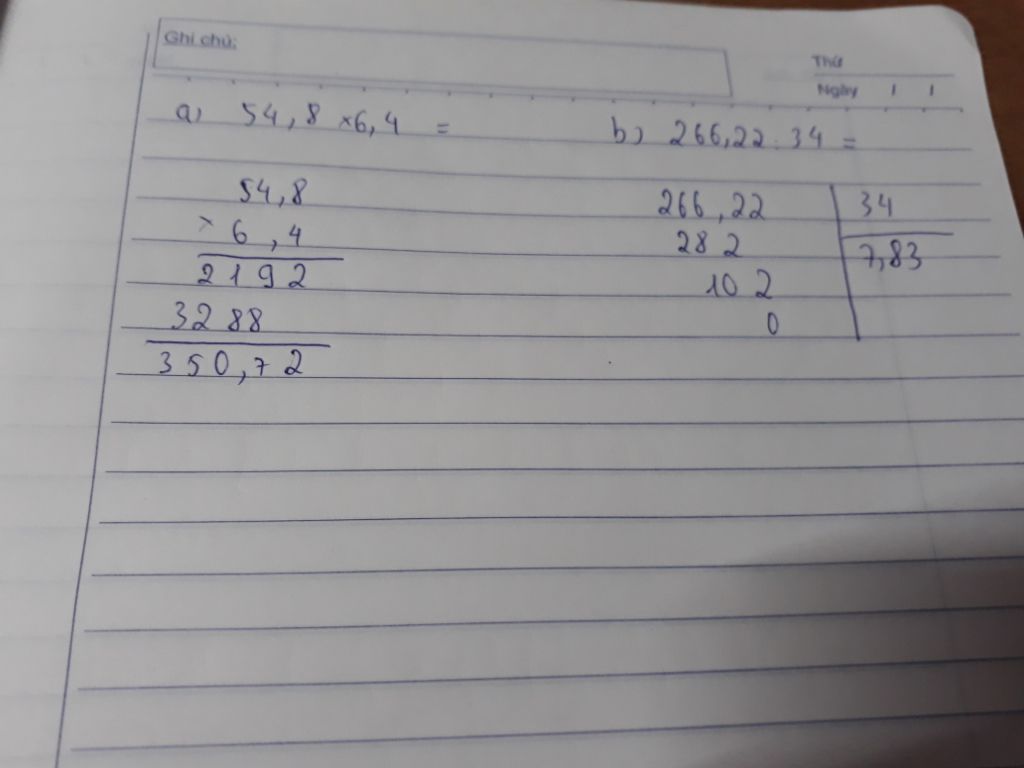 Ghi chú:
Thứ
Ngày / /
a) 54,8 × 6,4 =
54,8
× 6,4
2192
3288
350,72
b) 266,22 : 34 =
266,22 34
282 7,83
102
0